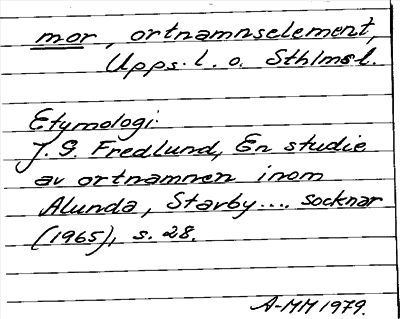 mor, ortnamnselement,
Upps. l. o. Sthlms l.
Etymologi:
J. G. Fredlund, En studie
av ortnamnen inom
Alunda, Stavby .... socknar
(1965), s. 28.
A-MM 1979.